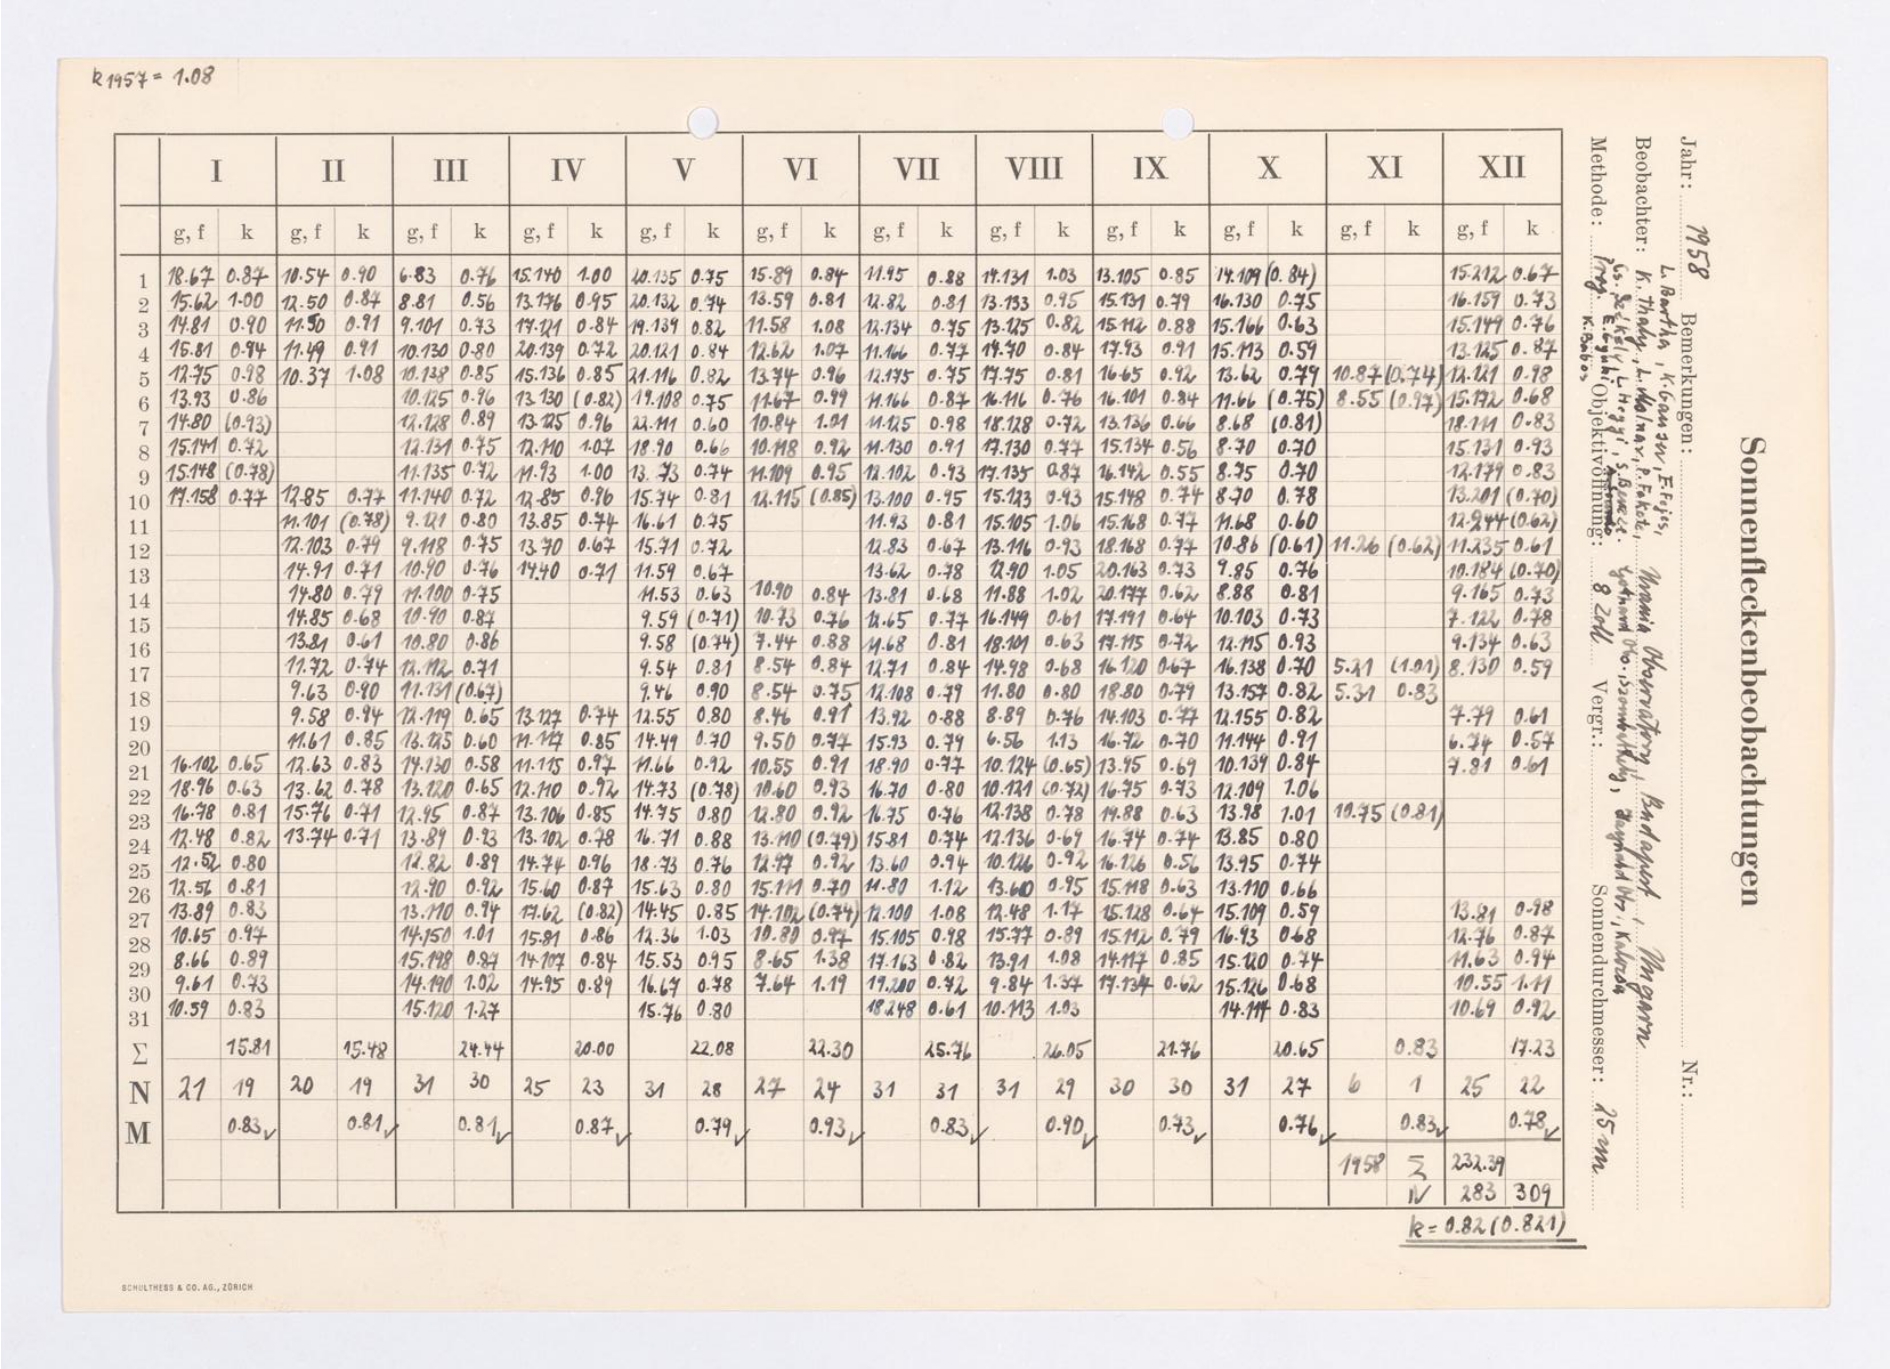 k1957 = 1.08
I II III IV V VI VII VIII IX X XI XII
g, f k g, f k g, f k g, f k g, f k g, f k g, f k g, f k g, f k g, f k g, f k g, f k
1 18.67 0.87 10.54 0.90 6.83 0.76 15.140 1.00 20.135 0.75 15.89 0.84 11.95 0.88 14.131 1.03 13.105 0.85 14.109 (0.84) 15.212 0.67
2 15.62 1.00 12.50 0.87 8.81 0.56 13.176 0.95 20.132 0.74 13.59 0.81 12.82 0.81 13.133 0.95 15.131 0.79 16.130 0.75 16.159 0.73
3 14.81 0.90 11.50 0.91 9.101 0.73 17.121 0.84 19.139 0.82 11.58 1.08 12.134 0.75 13.125 0.82 15.112 0.88 15.166 0.63 15.149 0.76
4 15.81 0.94 11.49 0.91 10.130 0.80 20.139 0.72 20.121 0.84 12.62 1.07 11.166 0.77 14.70 0.84 17.93 0.91 15.113 0.59 13.125 0.87
5 12.75 0.98 10.37 1.08 10.138 0.85 15.136 0.85 21.116 0.82 13.74 0.96 12.175 0.75 17.75 0.81 16.65 0.92 13.62 0.79 10.87 (0.74) 12.121 0.98
6 13.93 0.86 10.125 0.96 13.130 (0.82) 19.108 0.75 11.67 0.99 11.166 0.87 16.116 0.76 16.101 0.84 11.66 (0.75) 8.55 (0.97) 15.172 0.68
7 14.80 (0.93) 12.128 0.89 13.125 0.96 22.111 0.60 10.84 1.01 11.125 0.98 18.128 0.72 13.136 0.66 8.68 (0.81) 18.111 0.83
8 15.141 0.72 12.131 0.75 12.110 1.07 18.90 0.66 10.118 0.92 11.130 0.91 17.130 0.77 15.134 0.56 8.70 0.70 15.131 0.93
9 15.148 (0.78) 11.135 0.72 11.93 1.00 13.73 0.74 11.109 0.95 12.102 0.93 17.135 0.87 16.142 0.55 8.75 0.70 12.179 0.83
10 17.158 0.77 12.85 0.77 11.140 0.72 12.85 0.96 15.74 0.81 12.115 (0.85) 13.100 0.95 15.123 0.93 15.148 0.74 8.70 0.78 13.201 (0.70)
11 11.101 (0.78) 9.121 0.80 13.85 0.74 16.61 0.75 11.93 0.81 15.105 1.06 15.168 0.77 11.68 0.60 12.244 (0.62)
12 12.103 0.79 9.118 0.75 13.70 0.67 15.71 0.72 12.83 0.67 13.116 0.93 18.168 0.77 10.86 (0.61) 11.26 (0.62) 11.235 0.61
13 14.91 0.71 10.90 0.76 14.40 0.71 11.59 0.67 13.62 0.78 12.90 1.05 20.163 0.73 9.85 0.76 10.184 (0.70)
14 14.80 0.79 11.100 0.75 11.53 0.63 10.90 0.84 13.81 0.68 11.88 1.02 20.177 0.62 8.88 0.81 9.165 0.73
15 14.85 0.68 10.90 0.87 9.59 (0.71) 10.73 0.76 12.65 0.77 16.149 0.61 17.191 0.64 10.103 0.73 7.122 0.78
16 13.81 0.61 10.80 0.86 9.58 (0.74) 7.44 0.88 11.68 0.81 18.101 0.63 17.115 0.72 12.115 0.93 9.134 0.63
17 11.72 0.74 12.112 0.71 9.54 0.81 8.54 0.84 12.71 0.84 14.98 0.68 16.120 0.67 16.138 0.70 5.21 (1.01) 8.130 0.59
18 9.63 0.90 11.131 (0.67) 9.46 0.90 8.54 0.75 12.108 0.79 11.80 0.80 18.80 0.79 13.157 0.82 5.31 0.83
19 9.58 0.94 12.119 0.65 13.127 0.74 12.55 0.80 8.46 0.91 13.92 0.88 8.89 0.76 14.103 0.77 12.155 0.82 7.79 0.61
20 11.61 0.85 13.125 0.60 11.117 0.85 14.49 0.70 9.50 0.77 15.93 0.79 6.56 1.13 16.72 0.70 11.144 0.91 6.74 0.57
21 16.102 0.65 12.63 0.83 14.130 0.58 11.115 0.97 11.66 0.92 10.55 0.91 18.90 0.77 10.124 (0.65) 13.95 0.69 10.139 0.84 7.81 0.61
22 18.96 0.63 13.62 0.78 13.120 0.65 12.110 0.92 14.73 (0.78) 10.60 0.93 16.70 0.80 10.121 (0.72) 16.75 0.73 12.109 1.06
23 16.78 0.81 15.76 0.71 12.95 0.87 13.106 0.85 14.75 0.80 12.80 0.92 16.75 0.76 12.138 0.78 19.88 0.63 13.98 1.01 10.75 (0.81)
24 12.48 0.82 13.74 0.71 13.89 0.93 13.102 0.78 16.71 0.88 13.110 (0.79) 15.81 0.74 12.136 0.69 16.74 0.74 13.85 0.80
25 12.52 0.80 12.82 0.89 14.74 0.96 18.73 0.76 12.97 0.92 13.60 0.94 10.126 0.92 16.126 0.56 13.95 0.74
26 12.56 0.81 12.90 0.92 15.60 0.87 15.63 0.80 15.111 0.70 11.80 1.12 13.60 0.95 15.118 0.63 13.110 0.66
27 13.89 0.83 13.110 0.94 17.62 (0.82) 14.45 0.85 14.102 (0.74) 12.100 1.08 12.48 1.17 15.128 0.64 15.109 0.59 13.81 0.98
28 10.65 0.97 14.150 1.01 15.81 0.86 12.36 1.03 10.80 0.97 15.105 0.98 15.77 0.89 15.112 0.79 16.93 0.68 12.76 0.87
29 8.66 0.89 15.198 0.87 14.107 0.84 15.53 0.95 8.65 1.38 17.163 0.82 13.91 1.08 14.117 0.85 15.120 0.74 11.63 0.94
30 9.61 0.73 14.190 1.02 14.95 0.89 16.67 0.78 7.64 1.19 19.200 0.72 9.84 1.37 17.134 0.62 15.126 0.68 10.55 1.11
31 10.59 0.83 15.120 1.27 15.76 0.80 18.248 0.61 10.113 1.03 14.114 0.83 10.69 0.92
Σ 15.81 15.48 24.44 20.00 22.08 22.30 25.76 26.05 21.76 20.65 0.83 17.23
N 21 19 20 19 31 30 25 23 31 28 27 24 31 31 31 29 30 30 31 27 6 1 25 22
M 0.83 0.81 0.81 0.87 0.79 0.93 0.83 0.90 0.73 0.76 0.83 0.78
1958 Σ 232.39
N 283 309
k = 0.82 (0.821)
SCHULTHESS & CO. AG., ZÜRICH
Sonnenfleckenbeobachtungen
Jahr: 1958 Bemerkungen: Nr.:
L. Bartha,
Beobachter: K. Thaly, Urania Budapest,
Methode: Proj. Objektivöffnung: 8 Zoll Vergr.: Sonnendurchmesser: 25 cm